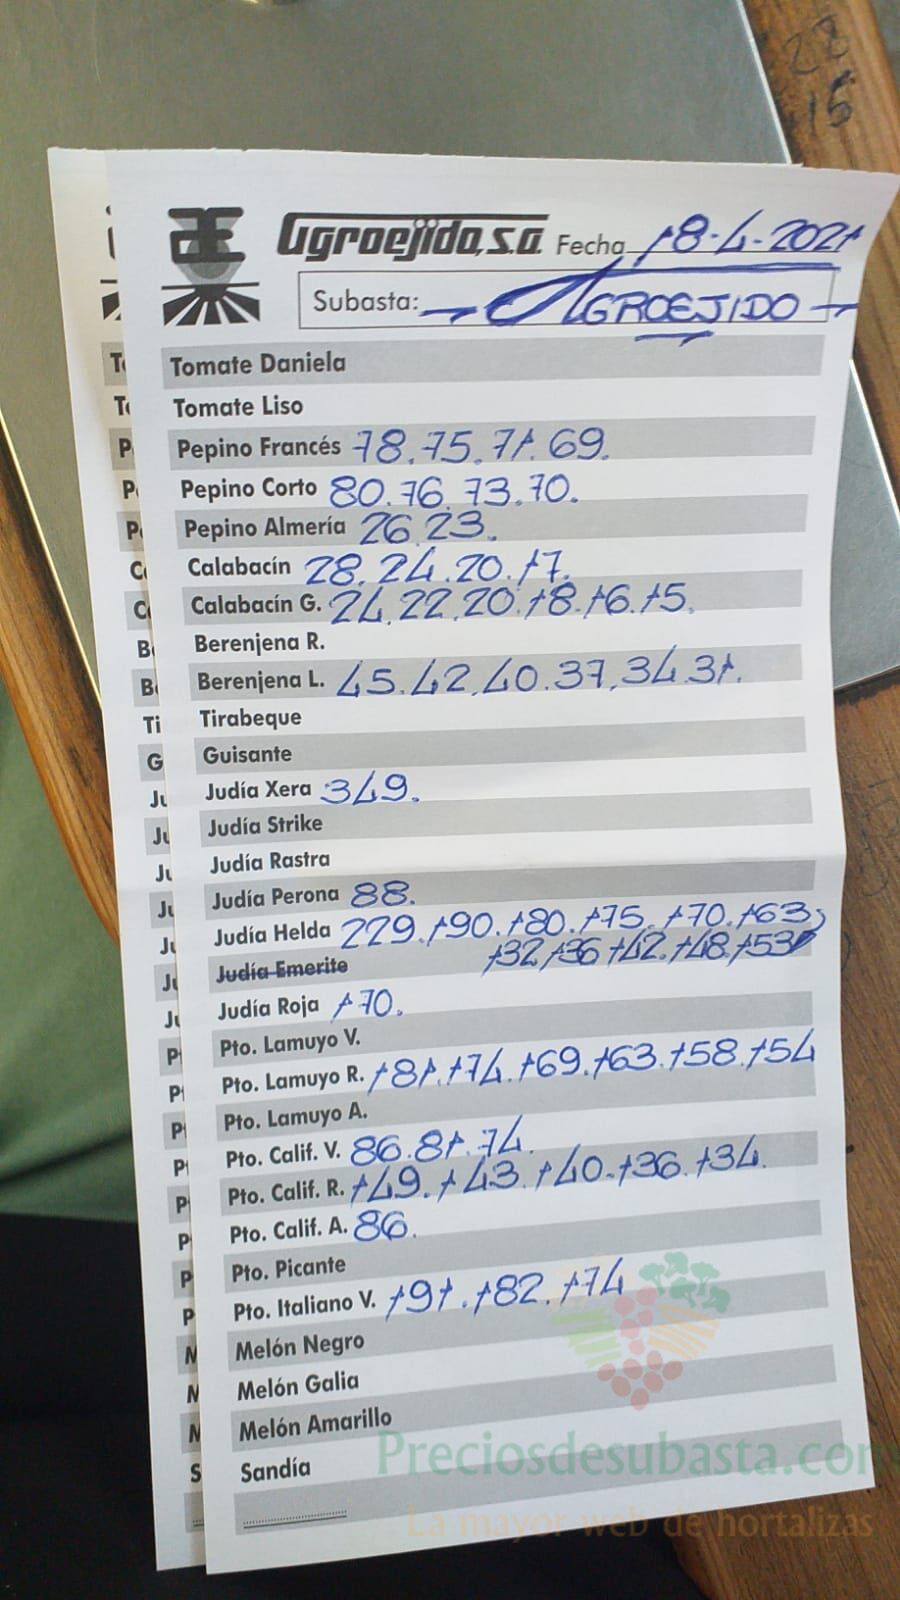 28
15
Agroejido, s.a. Fecha 18-4-2021
Subasta: AGROEJIDO
Tomate Daniela
Tomate Liso
Pepino Francés 78.75.71.69.
Pepino Corto 80.76.73.70.
Pepino Almería 26.23.
Calabacín 28.24.20.17.
Calabacín G. 24.22.20.18.16.15.
Berenjena R.
Berenjena L. 45.42.40.37.34.31.
Tirabeque
Guisante
Judía Xera 349.
Judía Strike
Judía Rastra
Judía Perona 88.
Judía Helda 229.190.180.175.170.163
132.136.142.148.153
Judía Emerite
Judía Roja 170.
Pto. Lamuyo V.
Pto. Lamuyo R. 181.174.169.163.158.154
Pto. Lamuyo A.
Pto. Calif. V. 86.81.74.
Pto. Calif. R. 149.143.140.136.134.
Pto. Calif. A. 86.
Pto. Picante
Pto. Italiano V. 191.182.174
Melón Negro
Melón Galia
Melón Amarillo
Sandía
Preciosdesubasta.com
La mayor web de hortalizas